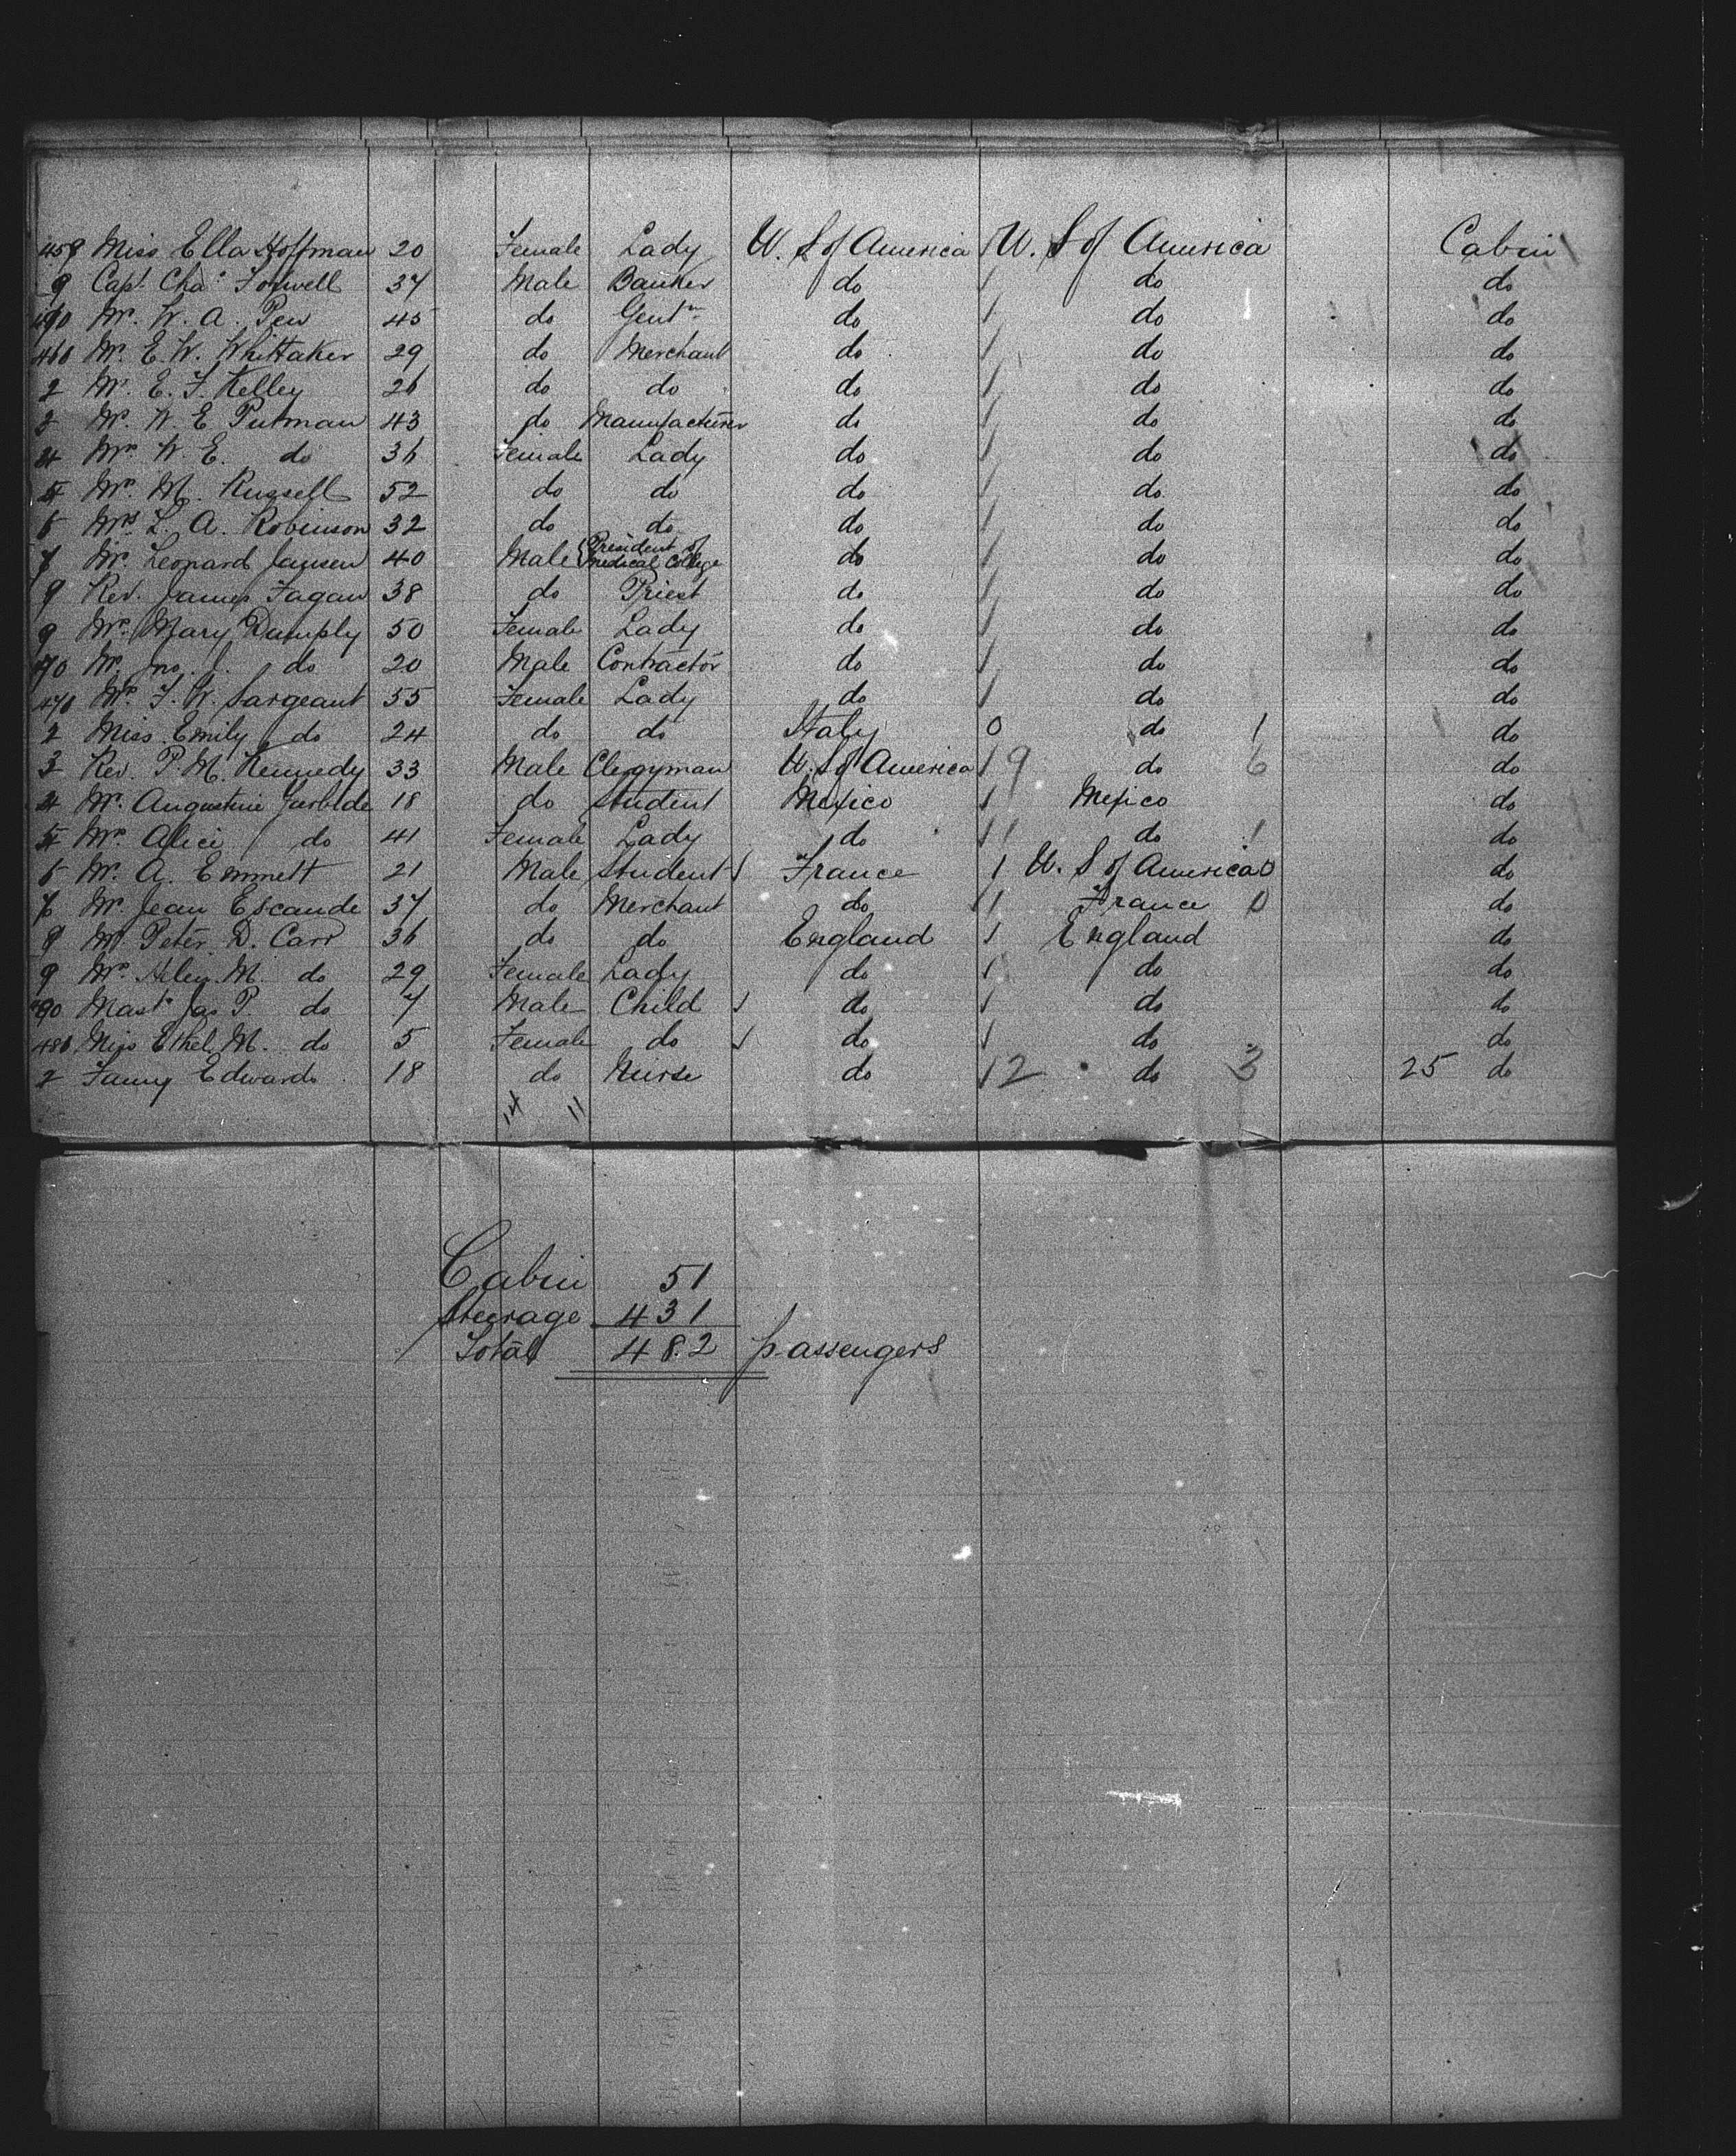 458 Miss Ella Hoffman 20 Female Lady U. S of America U. S of America Cabin
9 Capt. Chas. 37 Male Banker do 1 do do
Mr. W. A. Pew 45 do Gentn do 1 do do
Mr. E. W. Whittaker 29 do Merchant do 1 do do
2 Mr. E. F. Kelley 26 do do do 1 do do
Mr. W. E Putman 43 do Manufacturer do 1 do do
4 Mrs W. E. do 36 Female Lady do 1 do do
5 Mrs. M. Russell 52 do do do 1 do do
Mrs L. A. Robinson 32 do do do 1 do do
7 Mr. Leonard Jansen 40 Male President of Medical College do 1 do do
Rev. James Fagan 38 do Priest do 1 do do
9 Mrs. Mary Dumply 50 Female Lady do 1 do do
70 Mr. Jno. J. do 20 Male Contractor do 1 do do
Mrs. F. W. Sargeant 55 Female Lady do 1 do do
2 Miss Emily do 24 do do Italy 0 do 1 do
3 Rev. P. M. Kennedy 33 Male Clergyman U. S of America 19 do 6 do
4 Mr. Augustine 18 do Student Mexico 1 Mexico do
5 Mrs. Alice do 41 Female Lady do 11 do 1 do
Mr. A. Emmett 21 Male Student France 1 U. S of America 0 do
Mr. Jean Escande 37 do Merchant do 1 France 0 do
Mr. Peter D. Carr 36 do do England 1 England do
9 Mrs. Helen M. do 29 Female Lady do 1 do do
Mastr Jas P. do 7 Male Child do 1 do do
Miss Ethel M. do 5 Female do do 1 do do
2 Fanny Edwards 18 do Nurse do 12 do 3 25 do
14 11
Cabin 51
Steerage 431
Total 482 passengers